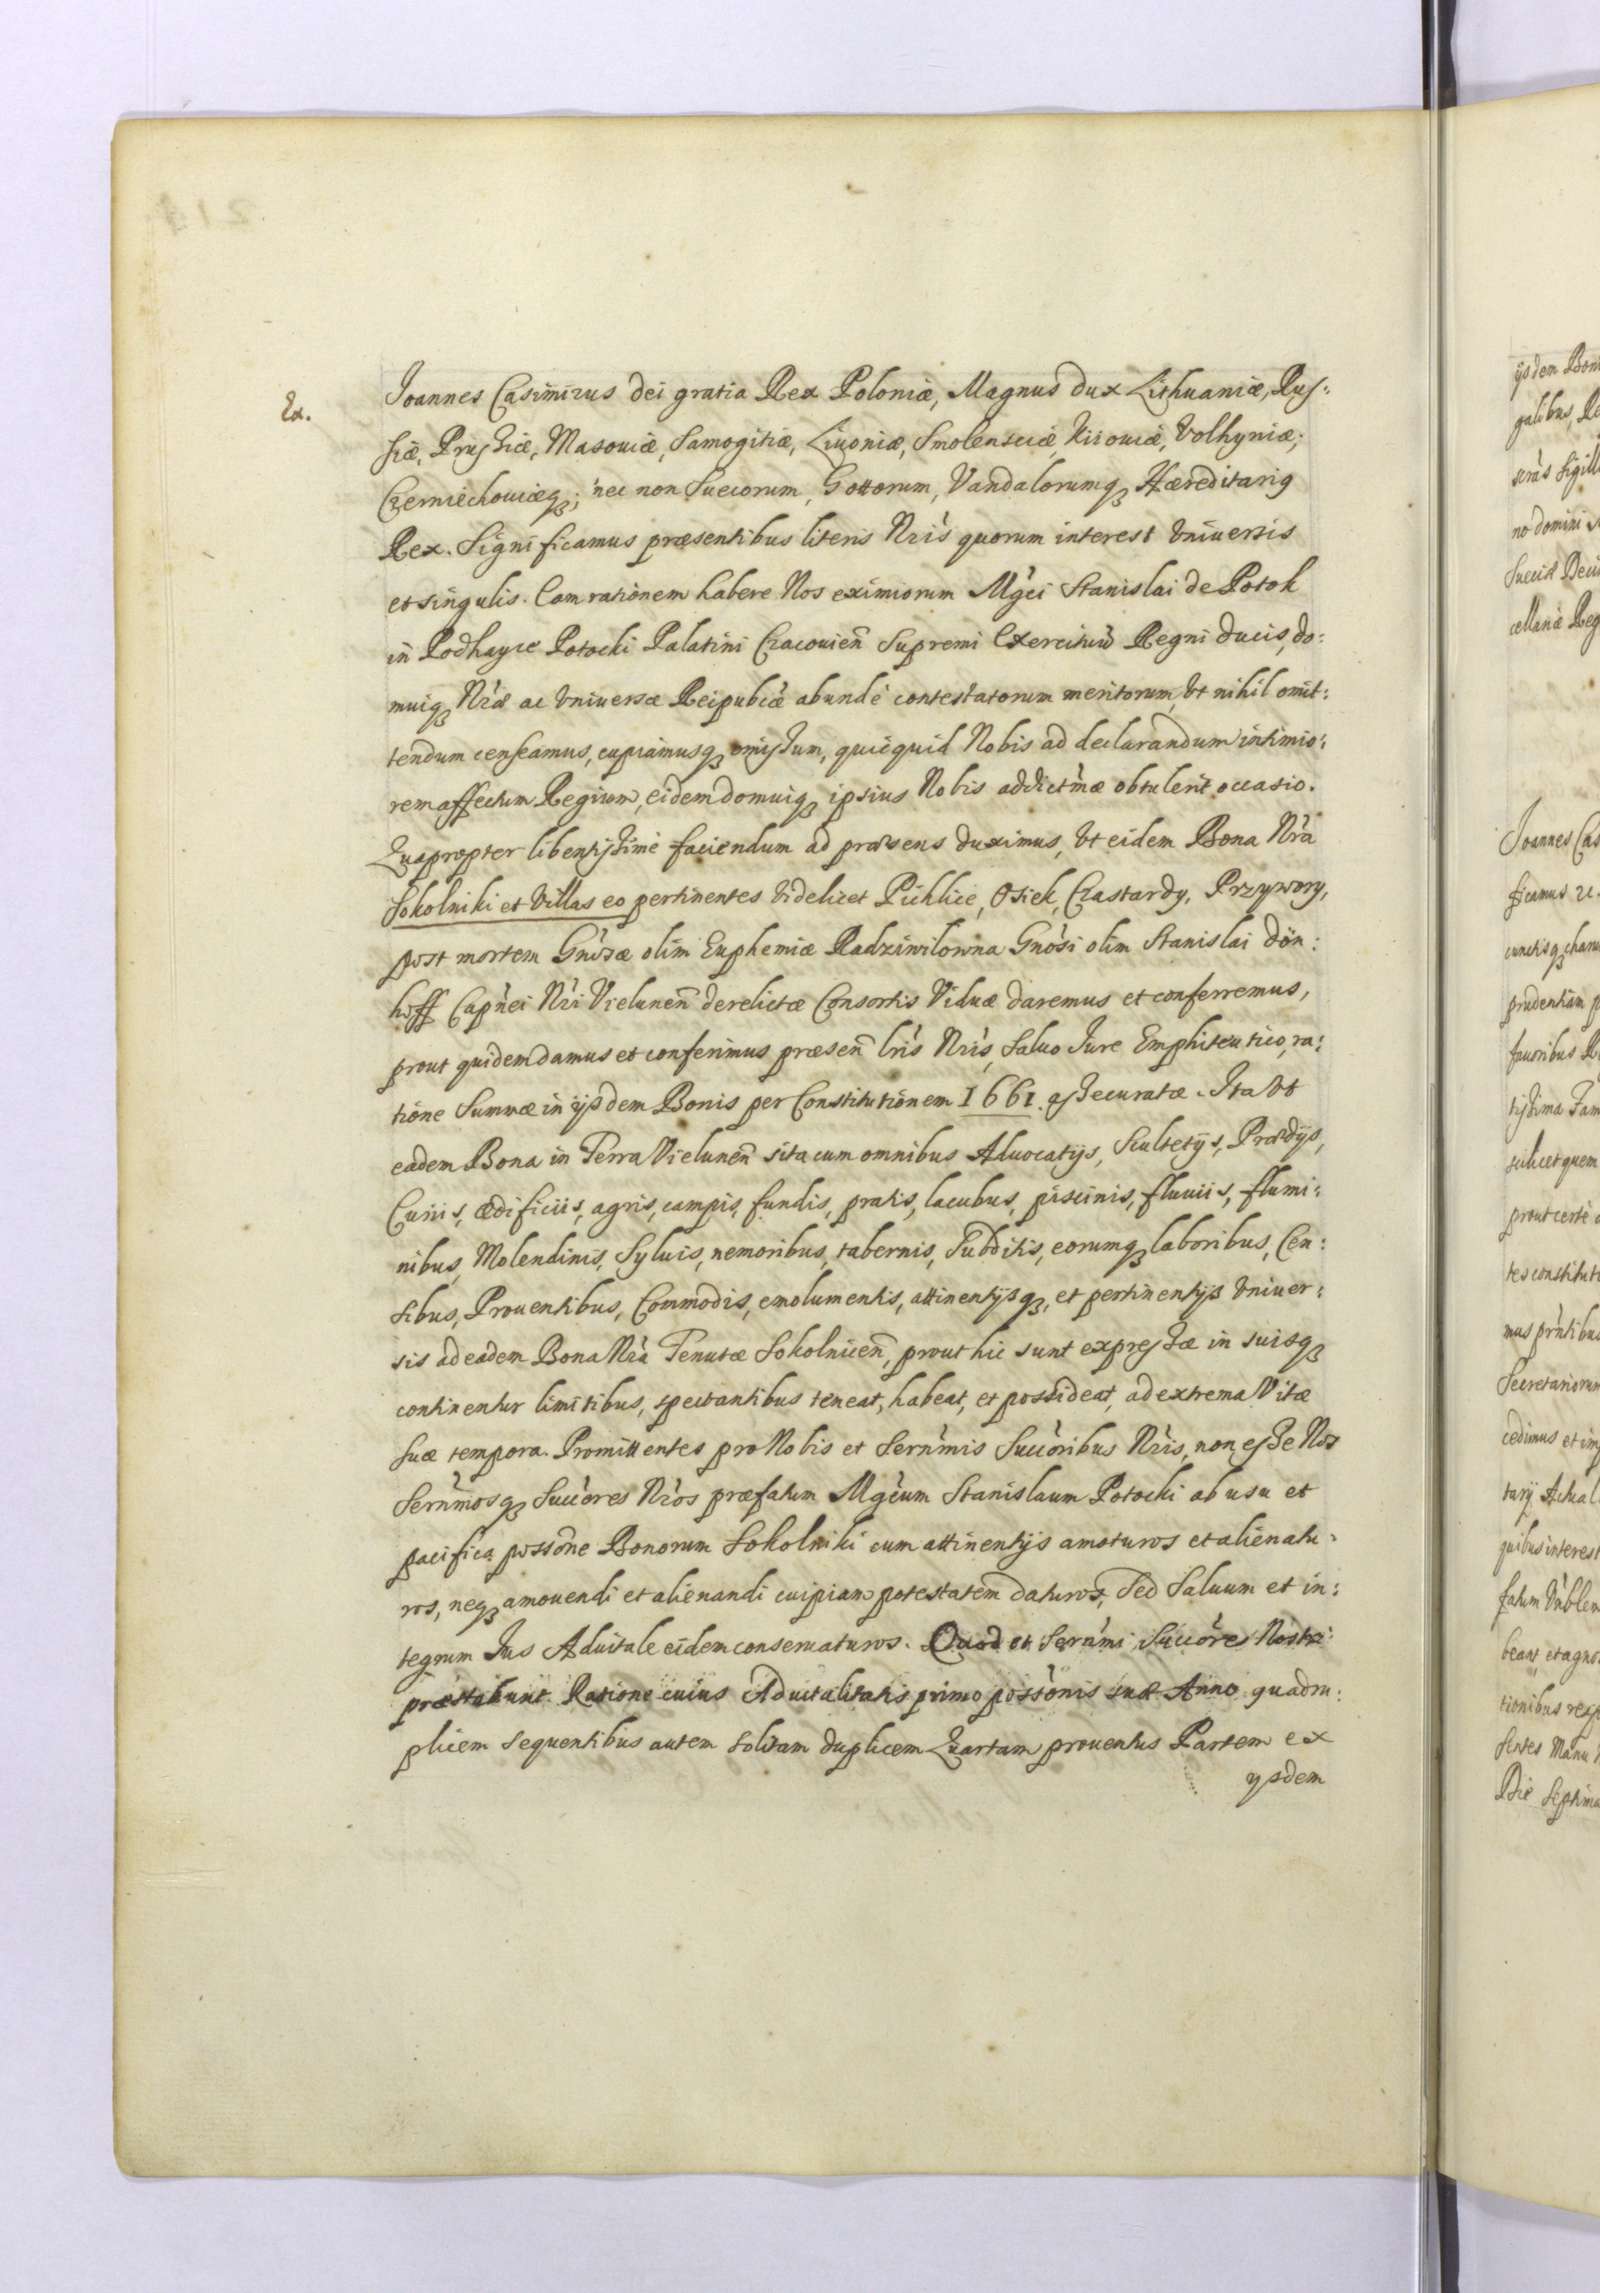 Ex.
Joannes Casimirus dei gratia Rex Poloniæ, Magnus dux Lithuaniæ, Rus:
siæ, Prussiæ, Masouiæ, Samogitiæ, Liuoniæ, Smolensciæ, Kiiouiæ, Volhyniæ,
Czerniechouiæq3; nec non Suecorum, Gottorum, Vandalorumq3 Hæreditarig
Rex. Significamus præsentibus literis Nri̇s quorum interest Vniuersis
et singulis. Eam rationem habere Nos eximiorum Mg̀ci Stanislai de Potok
in Podhayce Potocki Palatini Cracouien̄ Supremi Exercituū Regni Ducis, do:
muiq3 Nræ̀ ac Vniuersæ Reipublcæ̀ abundè contestatorum meritorum, Vt nihil omit:
tendum censeamus, cupiamusq3 omissum, quicquid Nobis ad declarandum intimio:
rem affectum Regium, eidem domuiq3 ipsius Nobis addictm̀æ obtulerit occasio.
Quapropter libentissimè faciendum ad præsens duximus, Vt eidem Bona Nrà
Sokolniki et Villas eo pertinentes Videlicet Pichlice, Osiek, Czastardy, Przywory,
post mortem Gnòsæ olim Euphemiæ Radziwilowna Gnòsi olim Stanislai Dön:
hoff Capǹei Nrì Vielunen̄ derelictæ Consortis Viduæ daremus et conferremus,
prout quidem damus et conferimus præsen̄ lrìs Nrìs, Saluo Jure Emphiteutico, ra:
tione Summæ in ijsdem Bonis per Constitutionem 1661. assecuratæ. Ita Vt
eadem Bona in Terra Vielunen̄ sita cum omnibus Aduocatijs, Scultetijs, Prædijs,
Curiis, ædificiis, agris, campis, fundis, pratis, lacubus, piscinis, fluuiis, flumi:
nibus, Molendinis, Syluis, nemoribus, tabernis, Subditis, eorumq3 laboribus, Cen:
sibus, Prouentibus, Commodis, emolumentis, attinentijsq3, et pertinentijs Vniuer:
sis ad eadem Bona Nrà Tenutæ Sokolnicen̄, prout hic sunt expressæ in suisq3
continentur limitibus, spectantibus teneat, habeat, et possideat, ad extrema Vitæ
suæ tempora. Promittentes pro Nobis et Sernm̀is Succòribus Nrìs, non esse Nos
Sernm̀osq3 Succòres Nròs præfatum Mgc̀um Stanislaum Potocki ab usu et
pacifica possōne Bonorum Sokolniki cum attinentijs amoturos et alienatu:
ros, neq3 amouendi et alienandi cuipiam potestatem daturos, Sed Saluum et in:
tegrum Jus Aduitale eidem conseruaturos. Quod et Sernm̀i Succòres Nostri
præstabunt. Ratione cuius Aduitalitatis primo possònis suæ Anno quadru:
plicem sequentibus autem solitam duplicem Quartam prouentus Partem ex
ysdem
ijsdem
galibus,
no domini
Joannes Cas
ficamus
prudentiam
fauoribus
tissima Fam
scilicet quem
prout certè
tes constituti
mus prn̄tibus
Secretariorum
cedimus et im
tarij Actual
quibus interest
fatum
beant, et agno
tionibus resp
sentes Manu
Die Septima